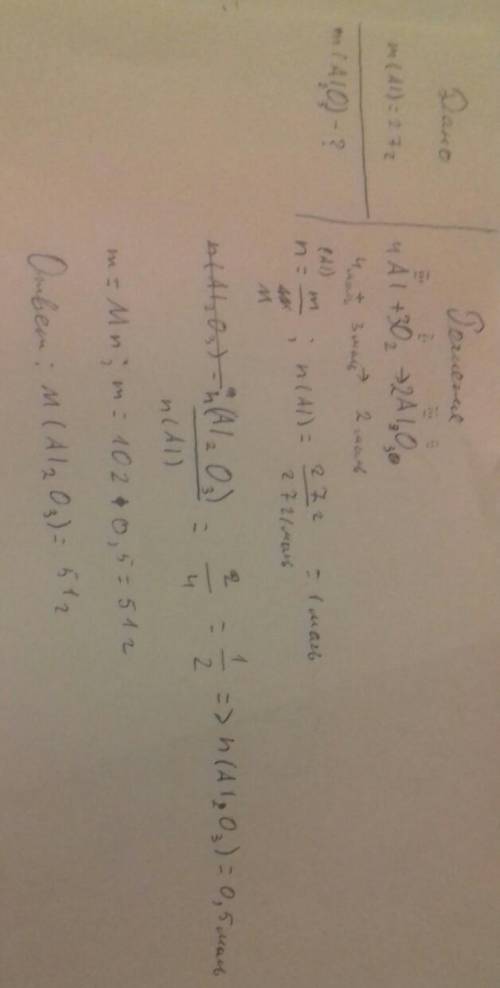 Дано
m(Al)=27г
m(Al₂O₃)-?
Решение
III II III II
4Al+3O₂→2Al₂O₃
4моль 3моль→ 2моль
(Al)
n=m/M; n(Al)=27г/27г/моль=1моль
n(Al₂O₃)/n(Al)=2/4=1/2=>n(Al₂O₃)=0,5моль
m=Mn; m=102•0,5=51г
Ответ: M(Al₂O₃)=51г